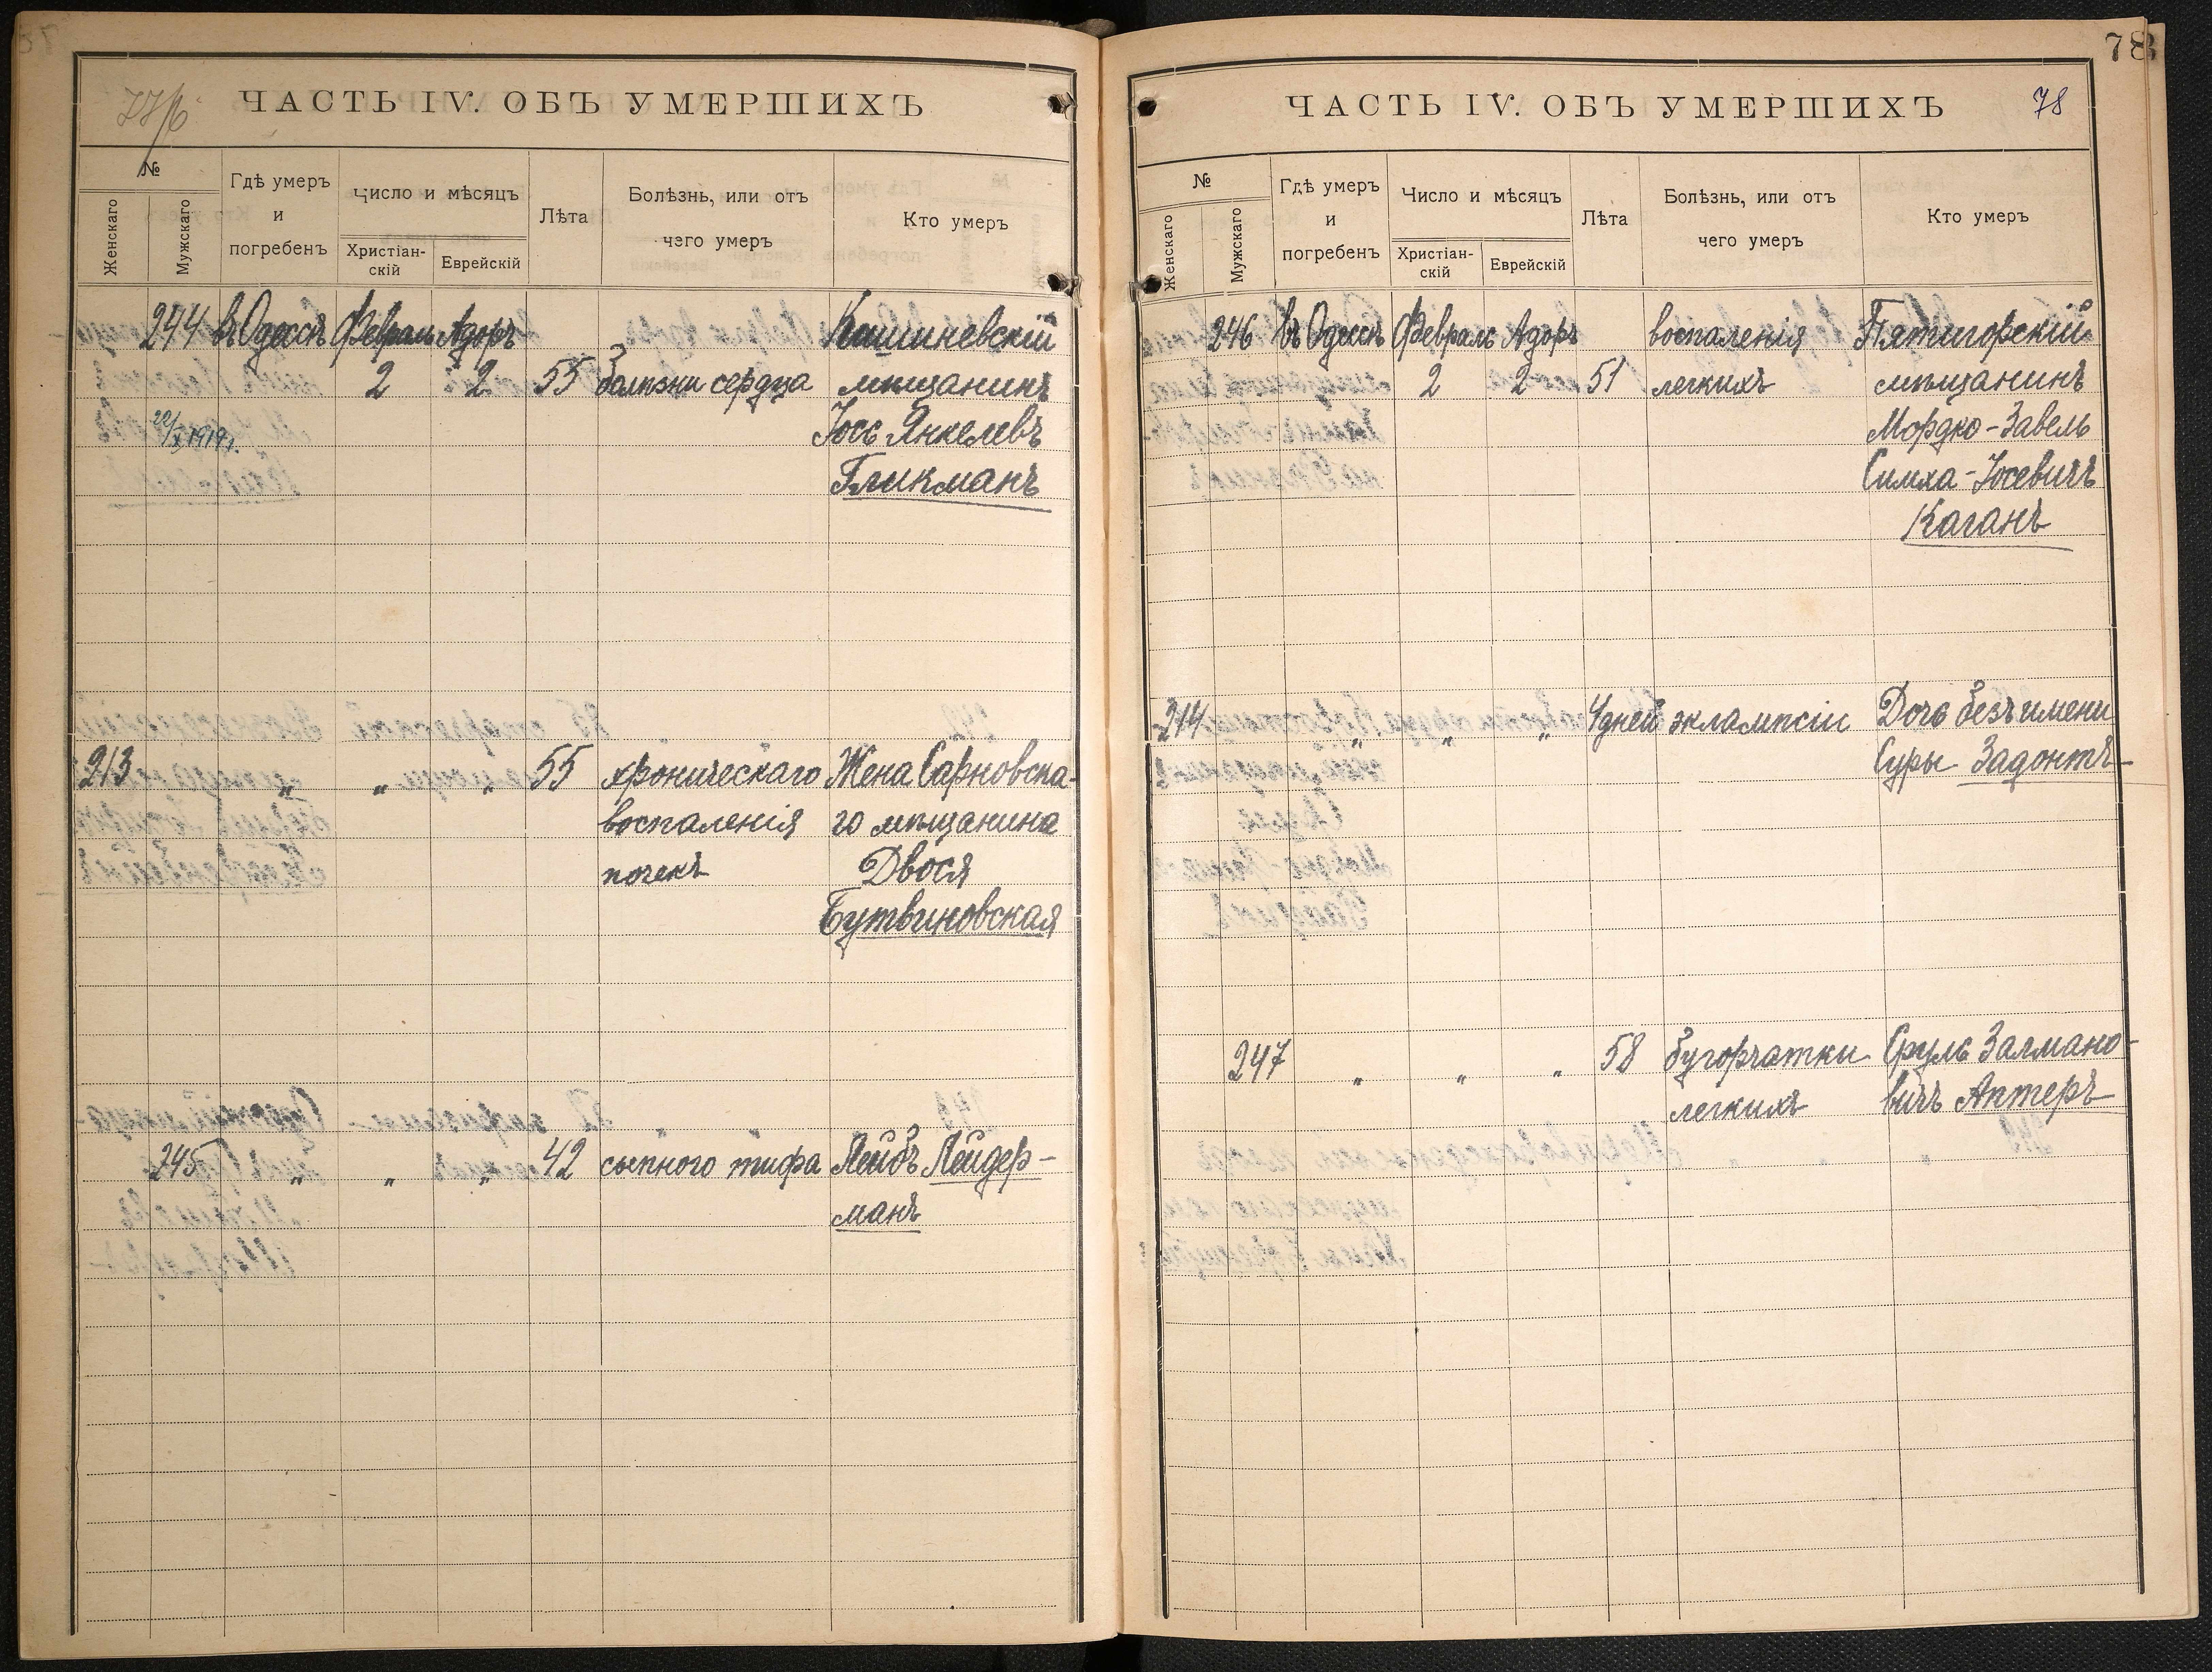 ЧАСТЬ IV. ОБЪ УМЕРШИХЪ
№
Женскаго
Мужскаго
Гдѣ умеръ
и
погребенъ
Число и мѣсяцъ
Христіан-
скій
Еврейскій
Лѣта
Болѣзнь, или отъ
чего умеръ
Кто умеръ
244 въ Одессѣ Февраль Адоръ Кишиневскій
2 2 55 болѣзни сердца мѣщанинъ
22/X 1919 г. Іось Янкелевъ
Гликманъ
213 " " " 55 хроническаго Жена Сарновска-
воспаленія го мѣщанина
почекъ Двося
Бутвиновская
245 " " " 42 сыпного тифа Лейбъ Лейдер-
манъ
78
ЧАСТЬ IV. ОБЪ УМЕРШИХЪ 78
№
Женскаго
Мужскаго
Гдѣ умеръ
и
погребенъ
Число и мѣсяцъ
Христіан-
скій
Еврейскій
Лѣта
Болѣзнь, или отъ
чего умеръ
Кто умеръ
246 въ Одессѣ Февраль Адоръ воспаленія Пятигорскій
2 2 51 легкихъ мѣщанинъ
Мордко-Завель
Симха-Іосевичъ
Каганъ
214 " " " 4 дней эклампсіи Дочь безъ имени
Суры Задонтъ
247 " " " 58 бугорчатки Сруль Залмано-
легкихъ вичъ Аптеръ